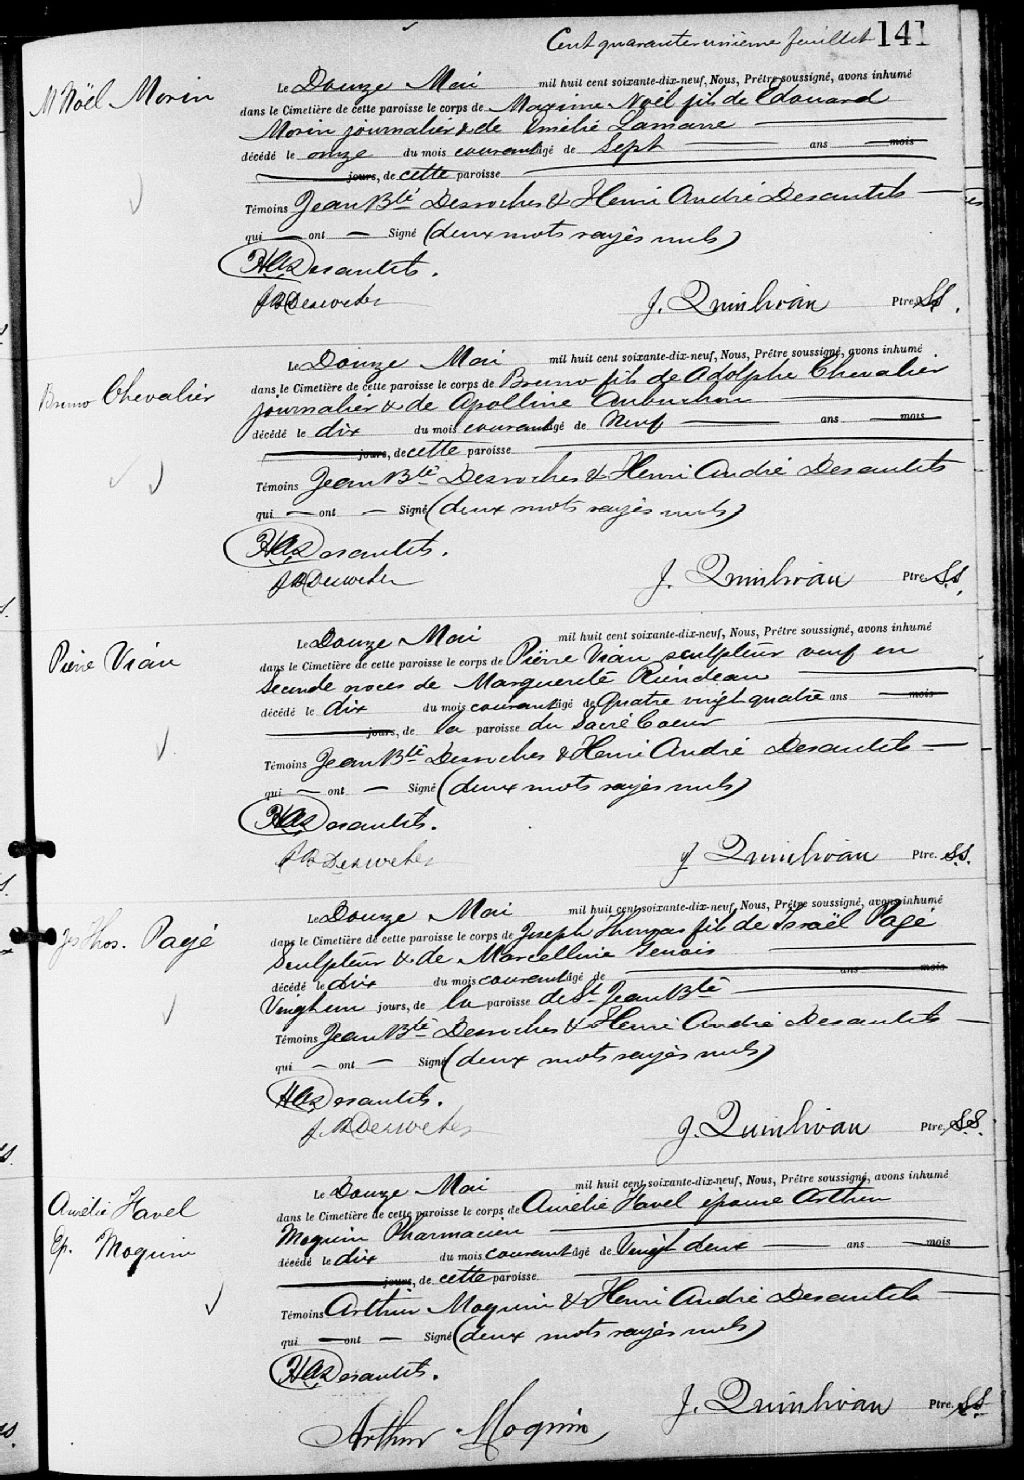 Cent quarante unième feuillet 141
M Noël Morin
Le Douze Mai mil huit cent soixante-dix-neuf, Nous, Prêtre soussigné, avons inhumé
dans le Cimetière de cette paroisse le corps de Maxime Noël fils de Edouard
Morin journalier & de Emélie Lamarre
décédé le onze du mois courant âgé de Sept ans mois
jours, de cette paroisse
Témoins Jean Bte Desroches & Henri André Desautels
qui ont Signé (deux mots rayés nuls)
HADesautels.
JBDesroches
J. Quinlivan Ptre, SS.
Bruno Chevalier
Le Douze Mai mil huit cent soixante-dix-neuf, Nous, Prêtre soussigné, avons inhumé
dans le Cimetière de cette paroisse le corps de Bruno fils de Adolphe Chevalier
journalier & de Apolline Aubuchon
décédé le dix du mois courant âgé de Neuf ans mois
jours, de cette paroisse
Témoins Jean Bte Desroches & Henri André Desautels
qui ont Signé (deux mots rayés nuls)
HADesautels.
JBDesroches
J. Quinlivan Ptre S.S.
Pierre Vian
Le Douze Mai mil huit cent soixante-dix-neuf, Nous, Prêtre soussigné, avons inhumé
dans le Cimetière de cette paroisse le corps de Pierre Vian sculpteur veuf en
Seconde noces de Marguerite Riendeau
décédé le dix du mois courant âgé de Quatre vingt quatre ans mois
jours, de la paroisse du Sacré Coeur
Témoins Jean Bte Desroches & Henri André Desautels
qui ont Signé (deux mots rayés nuls)
HADesautels.
JBDesroches
J Quinlivan Ptre. S.S.
Js Thos. Pagé
Le Douze Mai mil huit cent soixante-dix-neuf, Nous, Prêtre soussigné, avons inhumé
dans le Cimetière de cette paroisse le corps de Joseph Thomas fils de Israël Pagé
Sculpteur & de Marcelline Genois
décédé le dix du mois courant âgé de ans mois
Vingt un jours, de la paroisse de St Jean Bte
Témoins Jean Bte Desroches & Henri André Desautels
qui ont Signé (deux mots rayés nuls)
HADesautels.
JBDesroches
J. Quinlivan Ptre, S.S.
Aurélie Havel
Ep. Moquin
Le Douze Mai mil huit cent soixante-dix-neuf, Nous, Prêtre soussigné, avons inhumé
dans le Cimetière de cette paroisse le corps de Aurélie Havel épouse Arthur
Moquin Pharmacien
décédé le dix du mois courant âgé de Vingt deux ans mois
jours, de cette paroisse
Témoins Arthur Moquin & Henri André Desautels
qui ont Signé (deux mots rayés nuls)
HADesautels.
Arthur Moquin
J. Quinlivan Ptre, SS.